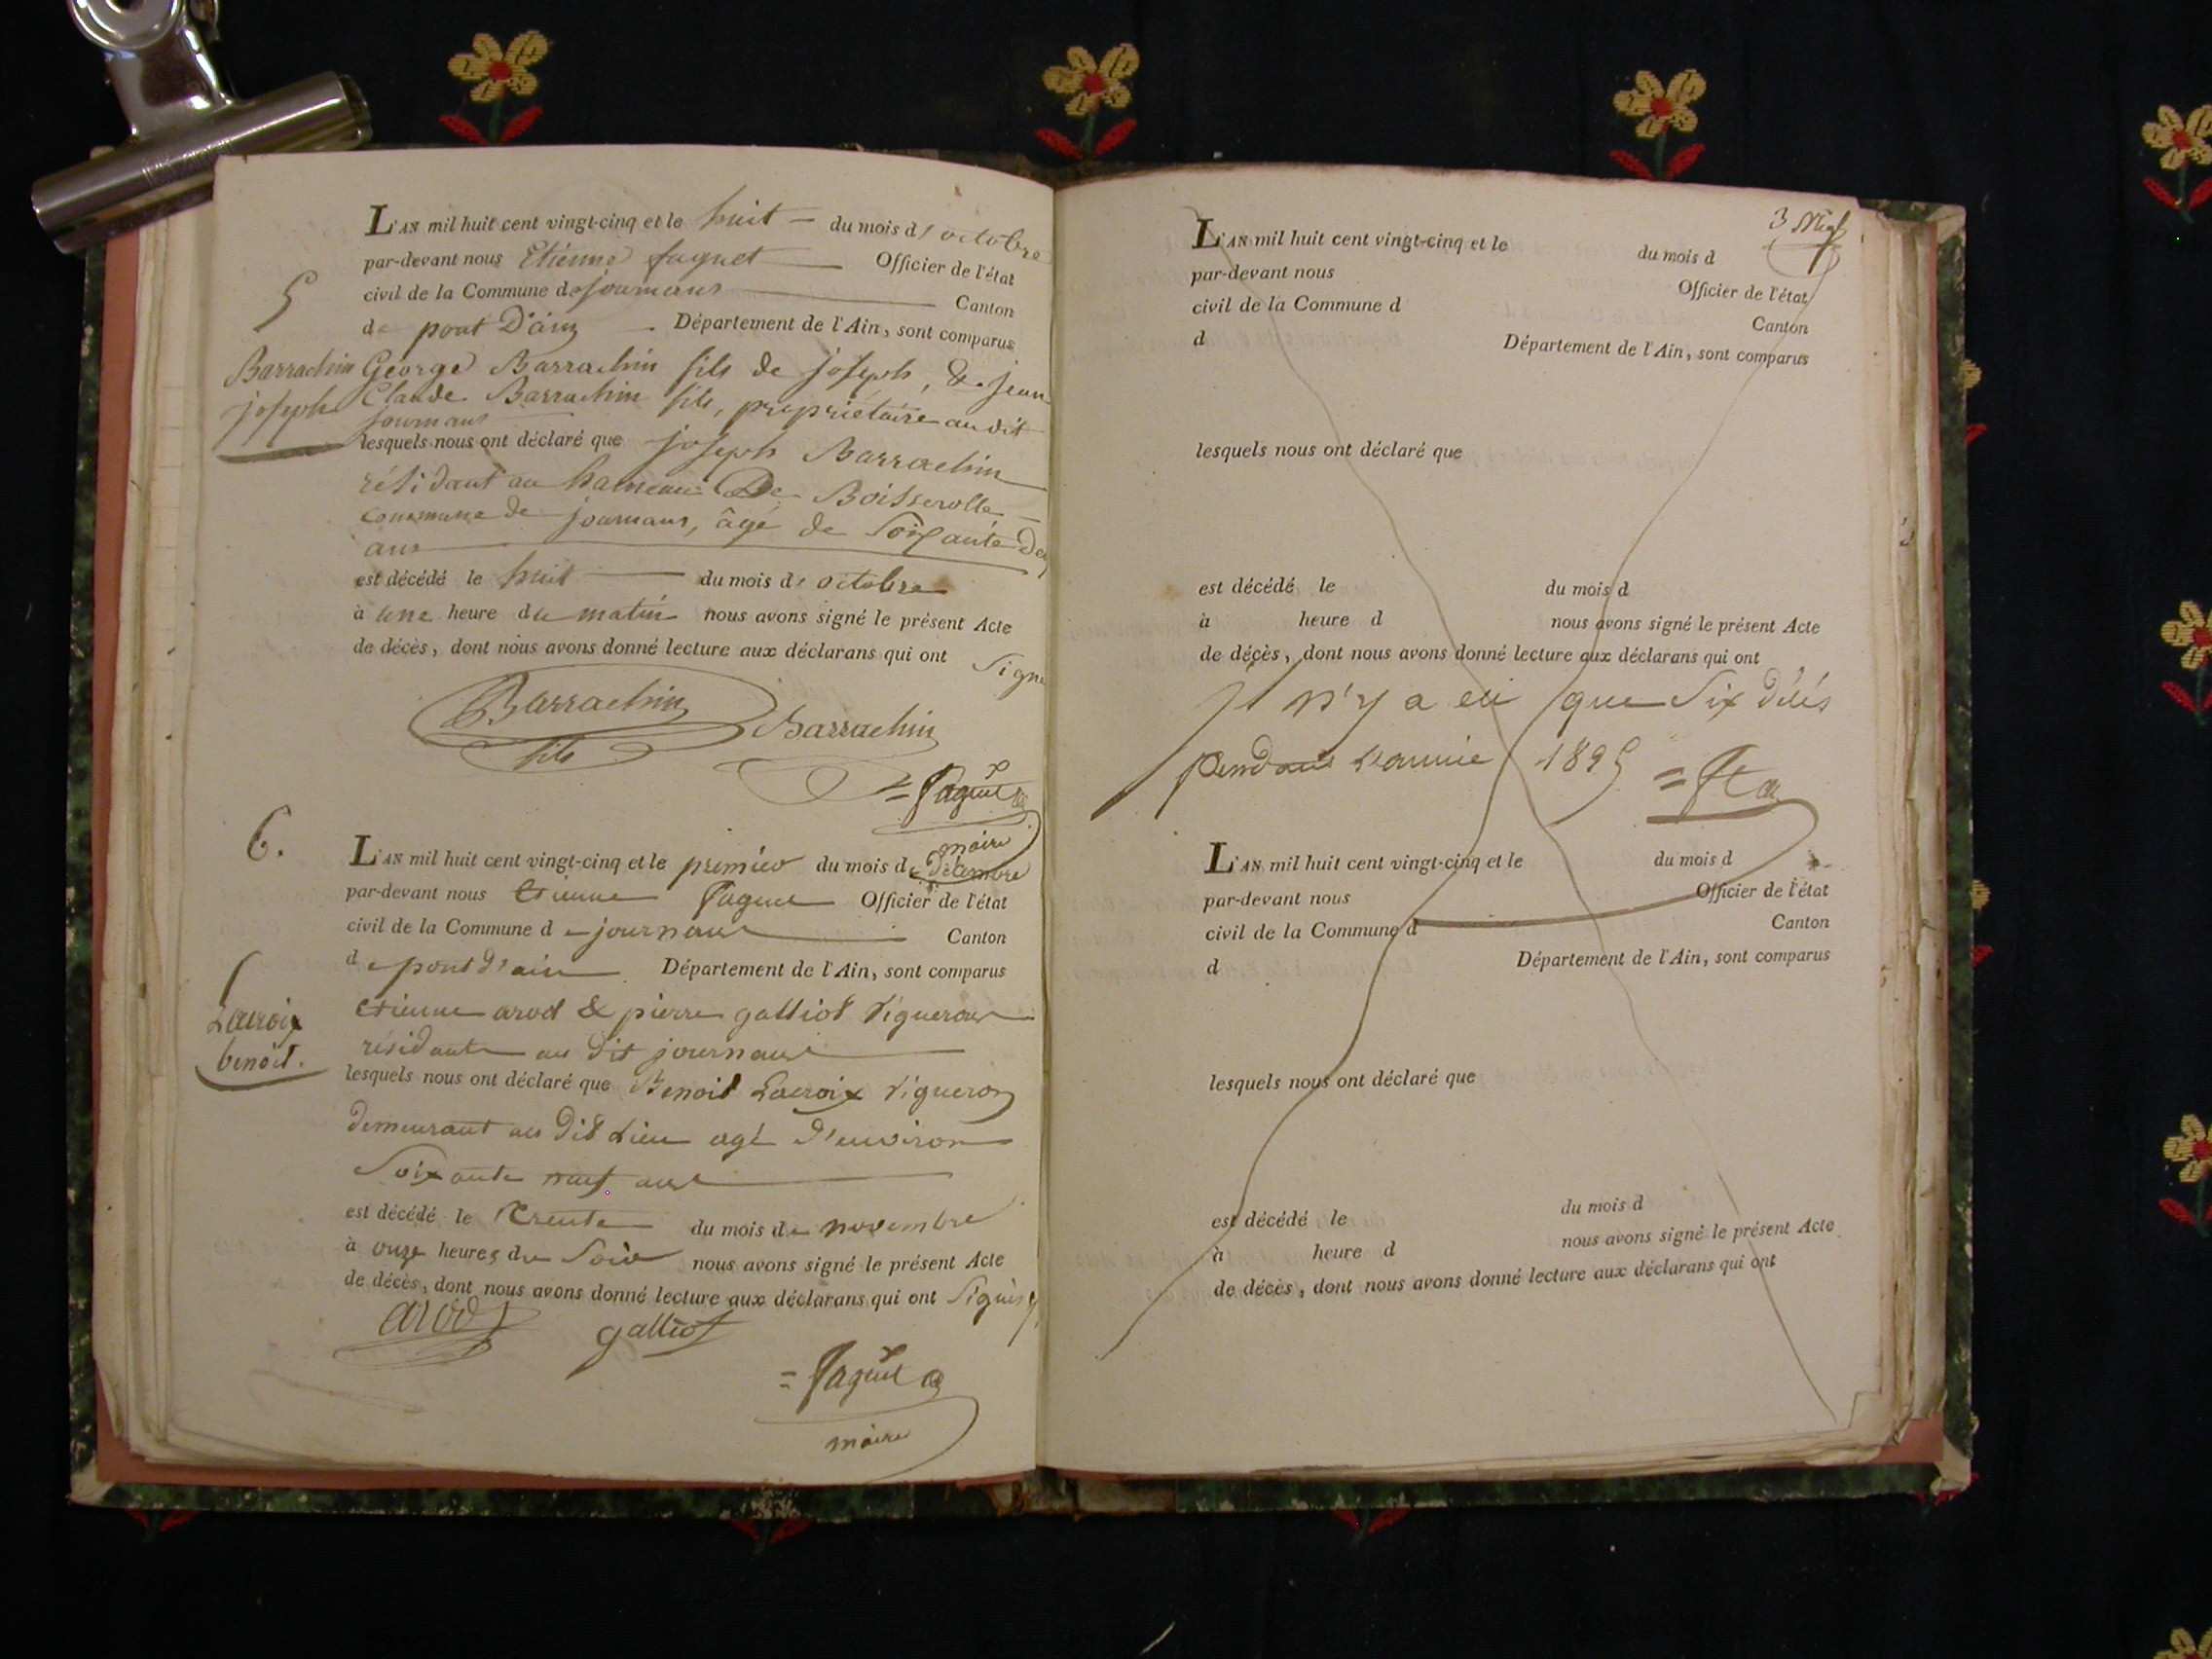 L'AN mil huit cent vingt-cinq et le huit du mois d'octobre
par-devant nous Etienne faguet Officier de l'état
5
civil de la Commune de journans Canton
de pont D'ain Département de l'Ain, sont comparus
Barrachin
joseph
George Barrachin fils de joseph, & jean
Claude Barrachin fils, propriétaire au dit
journans
lesquels nous ont déclaré que joseph Barrachin
résidant au hameau De Boisserolle
commune de journans, âgé de Soixante
ans
est décédé le huit du mois d'octobre
à une heure du matin nous avons signé le présent Acte
de décès, dont nous avons donné lecture aux déclarans qui ont Signé
Barrachin Barrachin
fils
= faguet
maire
6.
L'AN mil huit cent vingt-cinq et le premier du mois de Décembre
par-devant nous Etienne faguet Officier de l'état
civil de la Commune de journans Canton
de pont d'ain Département de l'Ain, sont comparus
Lacroix
benoit.
etienne arod & pierre galliot Vignerons
résidants au dit journans
lesquels nous ont déclaré que Benoit Lacroix Vigneron
demeurant au Dit Lieu agé d'environ
Soixante neuf ans
est décédé le trente du mois de novembre
à onze heures du Soir nous avons signé le présent Acte
de décès, dont nous avons donné lecture aux déclarans qui ont Signés
arod galliot
= faguet
maire
3
L'AN mil huit cent vingt-cinq et le du mois d
par-devant nous Officier de l'état
civil de la Commune d Canton
d Département de l'Ain, sont comparus
lesquels nous ont déclaré que
est décédé le du mois d
à heure d nous avons signé le présent Acte
de décès, dont nous avons donné lecture aux déclarans qui ont
Il n'y a eu que Six
pendant l'année 1825
L'AN mil huit cent vingt-cinq et le du mois d
par-devant nous Officier de l'état
civil de la Commune d Canton
d Département de l'Ain, sont comparus
lesquels nous ont déclaré que
est décédé le du mois d
à heure d nous avons signé le présent Acte
de décès, dont nous avons donné lecture aux déclarans qui ont